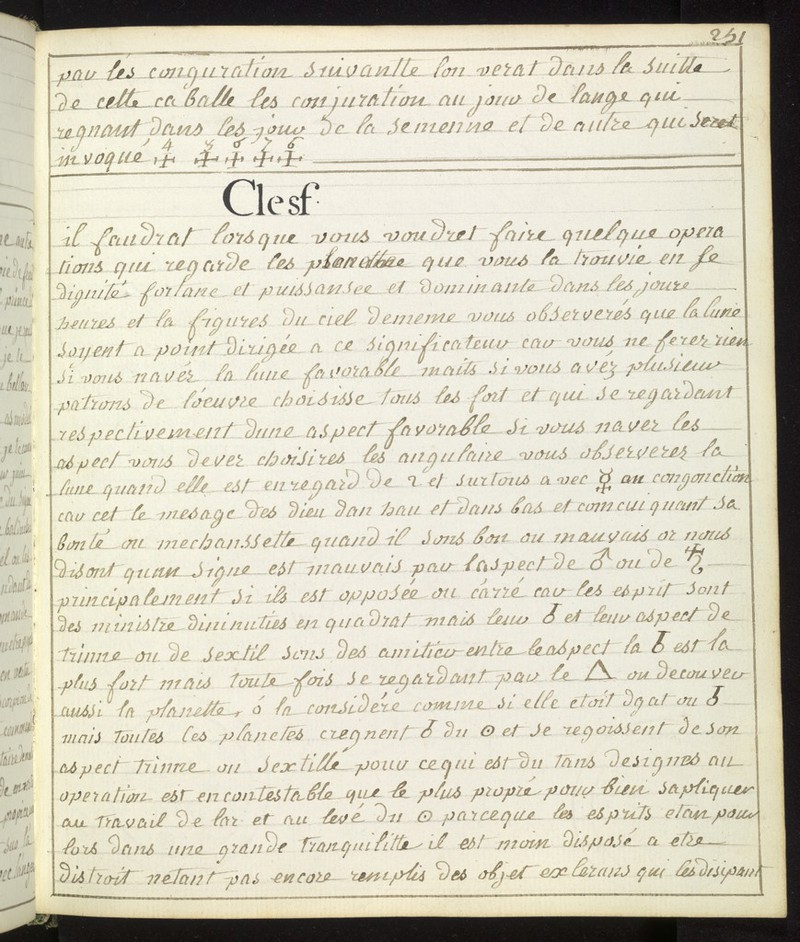 251
par les conguration suivantte lon verat dans la suitte
de cette caballe les conjuration au jour de lange qui
regnant dans les jour de la semenne et de autre qui seret
invoqué 4 3 6 7 6
Clesf.
il faudrat lorsque vous voudret faire quelque opera
tions qui regarde les planette que vous la trouvié en se
dignité fortune et puissansee et dominante dans les joure
heures et la figures du ciel dememe vous observerés que la lune
soyent a point dirigée a ce significateur car vous ne ferez rien
si vous navéz la lune favorable maits si vous avéz plusieur
patrons de lóeuvre choisisse tous les fort et qui se regardant
respectivement dune aspect favorable si vous naver les
aspect vous dever choisires les angulaire vous observerez la
lune quand elle est enregard de 2 et surtous avec ☿ an congonction
car cet le mesage des dieu dan hau et dans bas et comcuiquant sa
bonté ou mechanssette quand il sons bon ou mauvais or nous
disont quun signe est mauvais par laspect de ♂ ou de ♄
principalement si ils est opposée ou cárré car les esprit sont
des ministre diminuties en quadrat mais leur ♄ et leur aspect de
trinne ou de sextil sons des amitiee entre leaspect la ♄ est la
plus fort mais toute fois se regardant par le △ ou decouver
aussi la planette, ó la considére comme si elle etoit dgat ou ♄
mais toutes les planetes cregnent ♄ du ☉ et se regoissent de son
aspect trinne ou sextillé pour ce qui est du tans designes au
operation est encontestable que le plus propré pour bien sapliquer
au travail de lar et au levé du ☉ parceque les esprits etan pour
lors dans une grande tranquilitte il est moin disposé a etre
distroit netant pas encore remplis des objet exlerans qui les disipant